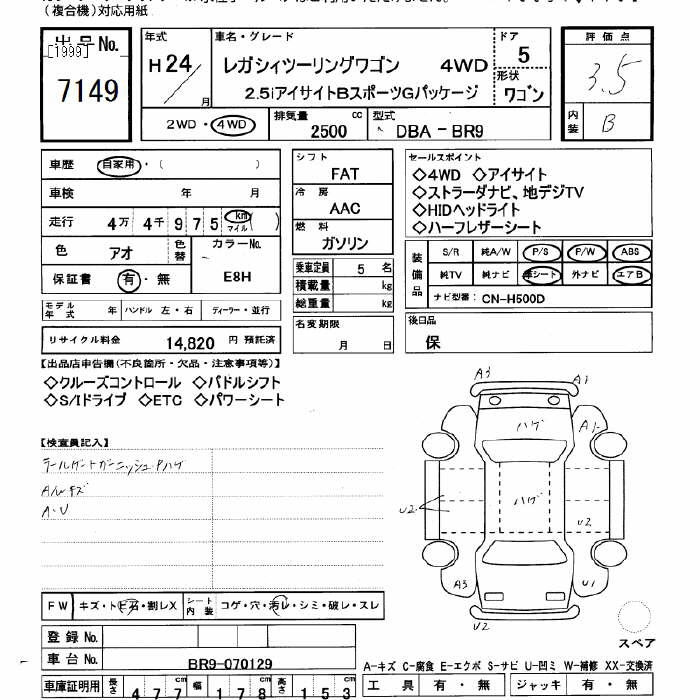 (複合機)対応用紙
出品No.
[1999]
7149
年式
H24/
月
車名・グレード
レガシィツーリングワゴン 4WD
2.5iアイサイトBスポーツGパッケージ
ドア
5
形状
ワゴン
評価点
3.5
内装
B
2WD・4WD
排気量
2500
cc
型式
DBA-BR9
車歴
自家用・( )
車検
年 月
走行
4万 4千 9 7 5
km
マイル
( )
色
アオ
色替
カラーNo.
E8H
保証書
有・無
モデル年式
年
ハンドル 左・右
ディーラー・並行
リサイクル料金
14,820 円 預託済
シフト
FAT
冷房
AAC
燃料
ガソリン
乗車定員 5 名
積載量 kg
総重量 kg
名変期限
月 日
セールスポイント
◇4WD ◇アイサイト
◇ストラーダナビ、地デジTV
◇HIDヘッドライト
◇ハーフレザーシート
装備品
S/R 純A/W P/S P/W ABS
純TV 純ナビ 革シート 外ナビ エアB
ナビ型番: CN-H500D
後日品
保
【出品店申告欄(不良箇所・欠品・注意事項等)】
◇クルーズコントロール ◇パドルシフト
◇S/Iドライブ ◇ETC ◇パワーシート
【検査員記入】
テールゲートガーニッシュPハゲ
A/Wキズ
A・U
A3
A1
ハゲ
A1
ハゲ
U2
U2
A3
U1
U2
スペア
FW
キズ・トビ石・割レX
シート内装
コゲ・穴・汚レ・シミ・破レ・スレ
登録No.
車台No.
BR9-070129
A-キズ C-腐食 E-エクボ S-サビ U-凹ミ W-補修 XX-交換済
車庫証明用
長さ
477
cm
幅
178
cm
高さ
153
cm
工具 有・無
ジャッキ 有・無